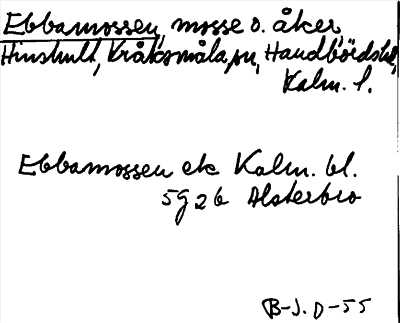 Ebbamossen, mosse o. åker,
Hinshult, Kråksmåla sn, Handbörds hd,
Kalm. l.
Ebbamossen ek Kalm. bl.
5G 2b Alsterbro
B-J. O-55